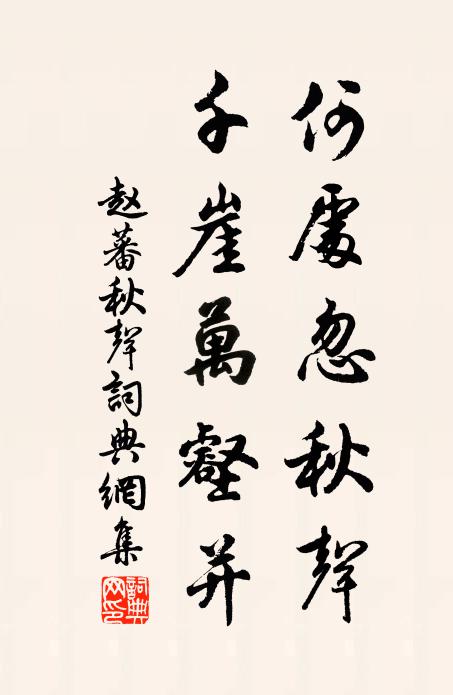 何處忽秋聲
千崖萬壑并
赵蕃秋聲詞典網集
詞典网印